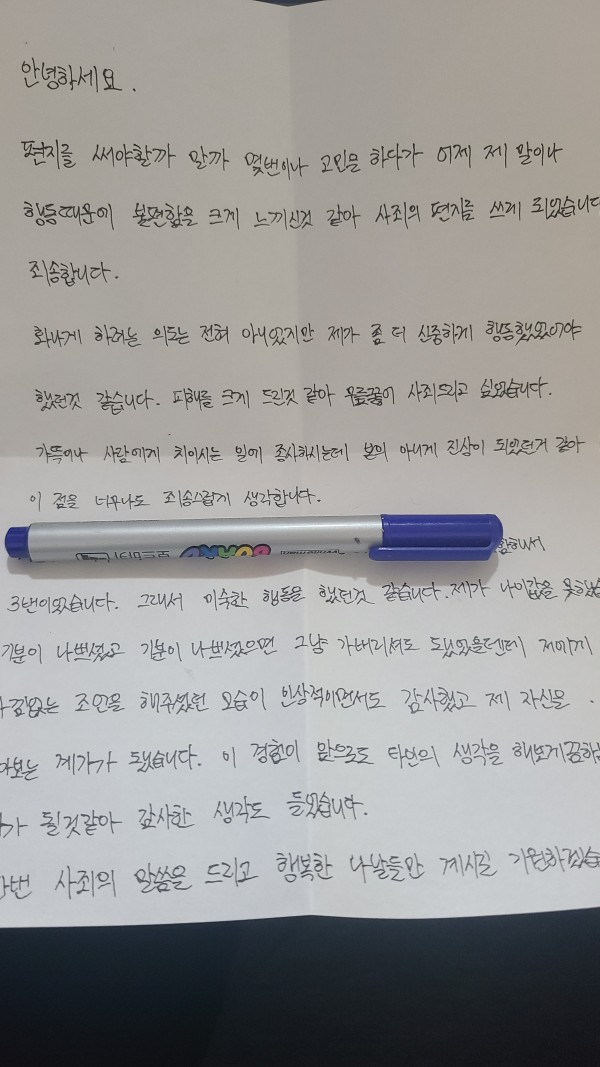 안녕하세요.
편지를 써야할까 말까 몇번이나 고민을 하다가 어제 제 말이나
행동때문에 불편함을 크게 느끼신것 같아 사죄의 편지를 쓰게 되었습니다
죄송합니다.
화나게 하려는 의도는 전혀 아니었지만 제가 좀 더 신중하게 행동했었어야
했던것 같습니다. 피해를 크게 드린것 같아 무릎꿇어 사죄드리고 싶었습니다.
가뜩이나 사람에게 치이시는 일에 종사하시는데 본의 아니게 진상이 되었던거 같아
이 점을 너무나도 죄송스럽게 생각합니다.
3번이었습니다. 그래서 미숙한 행동을 했던것 같습니다. 제가 나이값을 못했습
기분이 나쁘셨고 기분이 나쁘셨으면 그냥 가버리셔도 됐었을텐데 저에게
값없는 조언을 해주셨던 모습이 인상적이면서도 감사했고 제 자신을
아보는 계기가 됐습니다. 이 경험이 앞으로도 타인의 생각을 해보게끔하는
가 될것같아 감사한 생각도 들었습니다.
한번 사죄의 말씀을 드리고 행복한 나날들만 계시길 기원하겠습